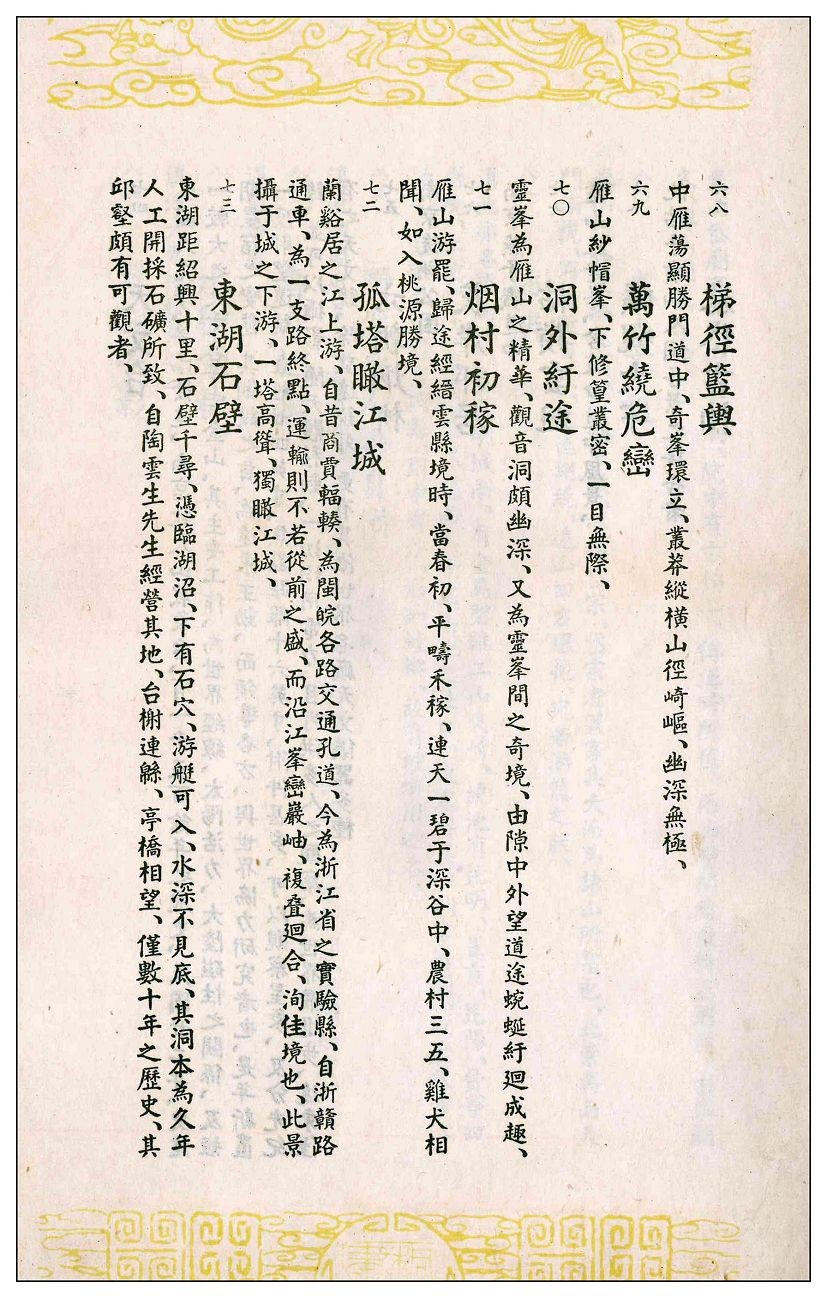 六八　梯徑籃輿
中雁蕩顯勝門道中、奇峯環立、叢莽縱橫山徑崎嶇、幽深無極、
六九　萬竹繞危巒
雁山紗帽峯、下修篁叢密、一目無際、
七〇　洞外紆途
靈峯為雁山之精華、觀音洞頗幽深、又為靈峯間之奇境、由隙中外望道途蜿蜒紆廻成趣、
七一　烟村初稼
雁山游罷、歸途經縉雲縣境時、當春初、平疇禾稼、連天一碧于深谷中、農村三五、雞犬相
聞、如入桃源勝境、
七二　孤塔瞰江城
蘭谿居之江上游、自昔商賈輻輳、為閩皖各路交通孔道、今為浙江省之實驗縣、自浙贛路
通車、為一支路終點、運輸則不若從前之盛、而沿江峯巒巖岫、複叠廻合、洵佳境也、此景
攝于城之下游、一塔高聳、獨瞰江城、
七三　東湖石壁
東湖距紹興十里、石壁千尋、憑臨湖沼、下有石穴、游艇可入、水深不見底、其洞本為久年
人工開採石礦所致、自陶雲生先生經營其地、台榭連緜、亭橋相望、僅數十年之歷史、其
邱壑頗有可觀者、